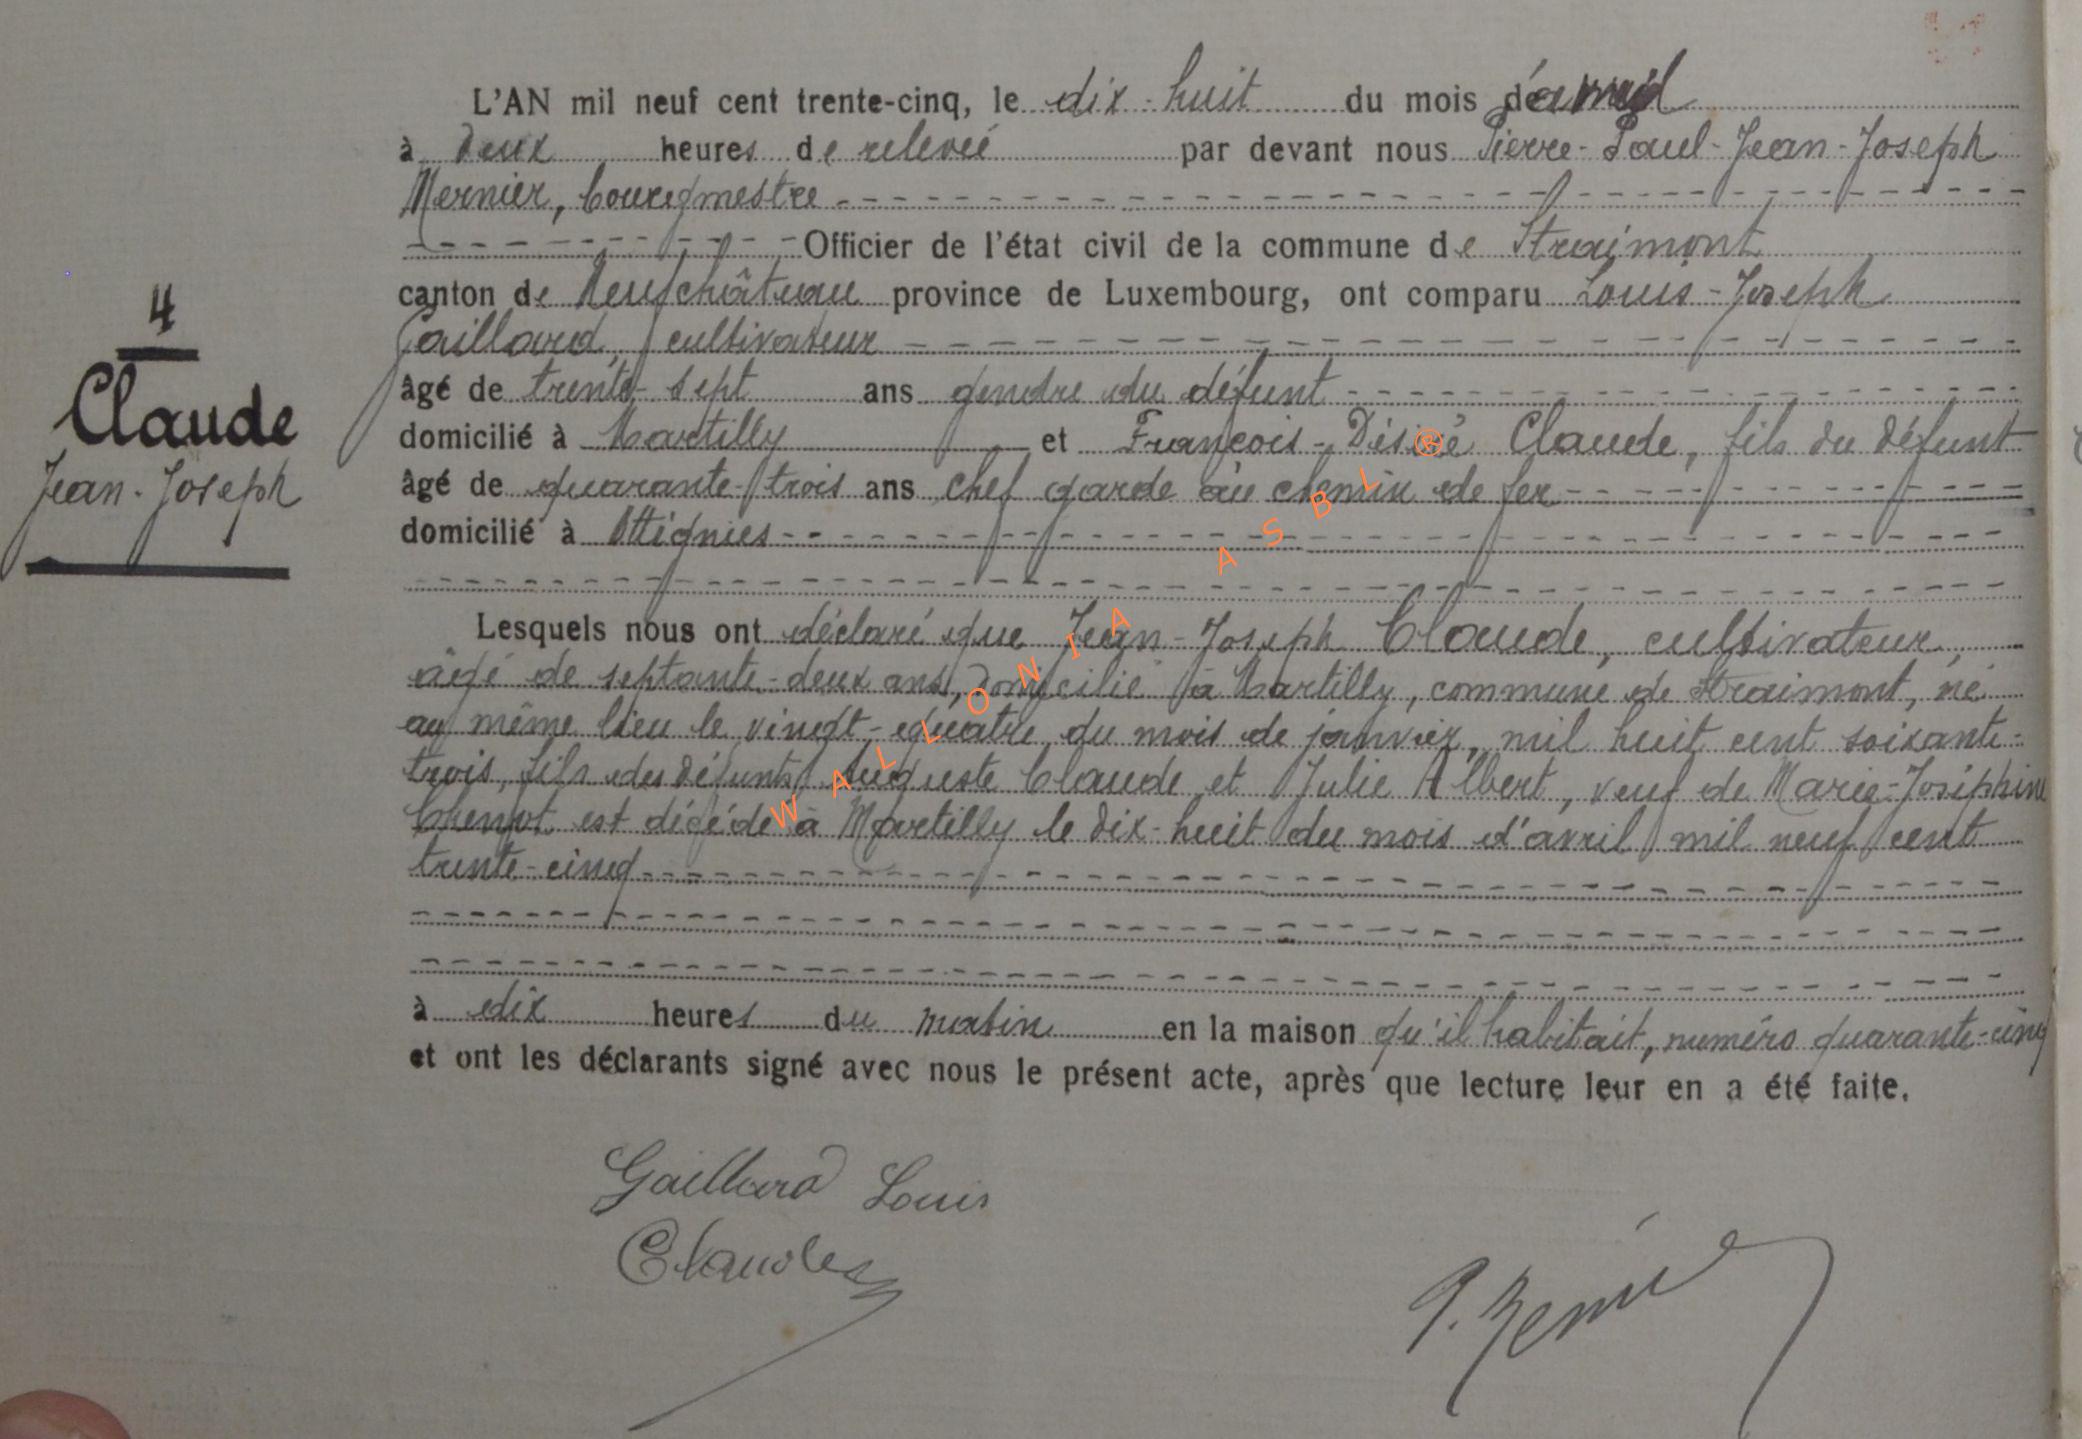 L'AN mil neuf cent trente-cinq, le dix-huit du mois d'avril
à deux heures de relevée par devant nous Pierre-Paul-Jean-Joseph
Mernier, bourgmestre
Officier de l'état civil de la commune de Straimont
canton de Neufchâteau province de Luxembourg, ont comparu Louis-Joseph
Gaillard, cultivateur
âgé de trente-sept ans gendre du défunt
domicilié à Martilly et François-Désiré Claude, fils du défunt
âgé de quarante-trois ans chef garde au chemin de fer
domicilié à Ottignies
4
Claude
Jean-Joseph
Lesquels nous ont déclaré que Jean-Joseph Claude, cultivateur,
âgé de septante-deux ans, domicilié à Martilly, commune de Straimont, né
au même lieu le vingt-quatre du mois de janvier, mil huit cent soixante-
trois, fils des défunts Auguste Claude et Julie Albert, veuf de Marie-Joséphine
est décédé à Martilly le dix-huit du mois d'avril mil neuf cent
trente-cinq
à dix heures du matin en la maison qu'il habitait, numéro quarante-cinq
et ont les déclarants signé avec nous le présent acte, après que lecture leur en a été faite.
Gaillard Louis
Claude
WALLONIA ASBL ®